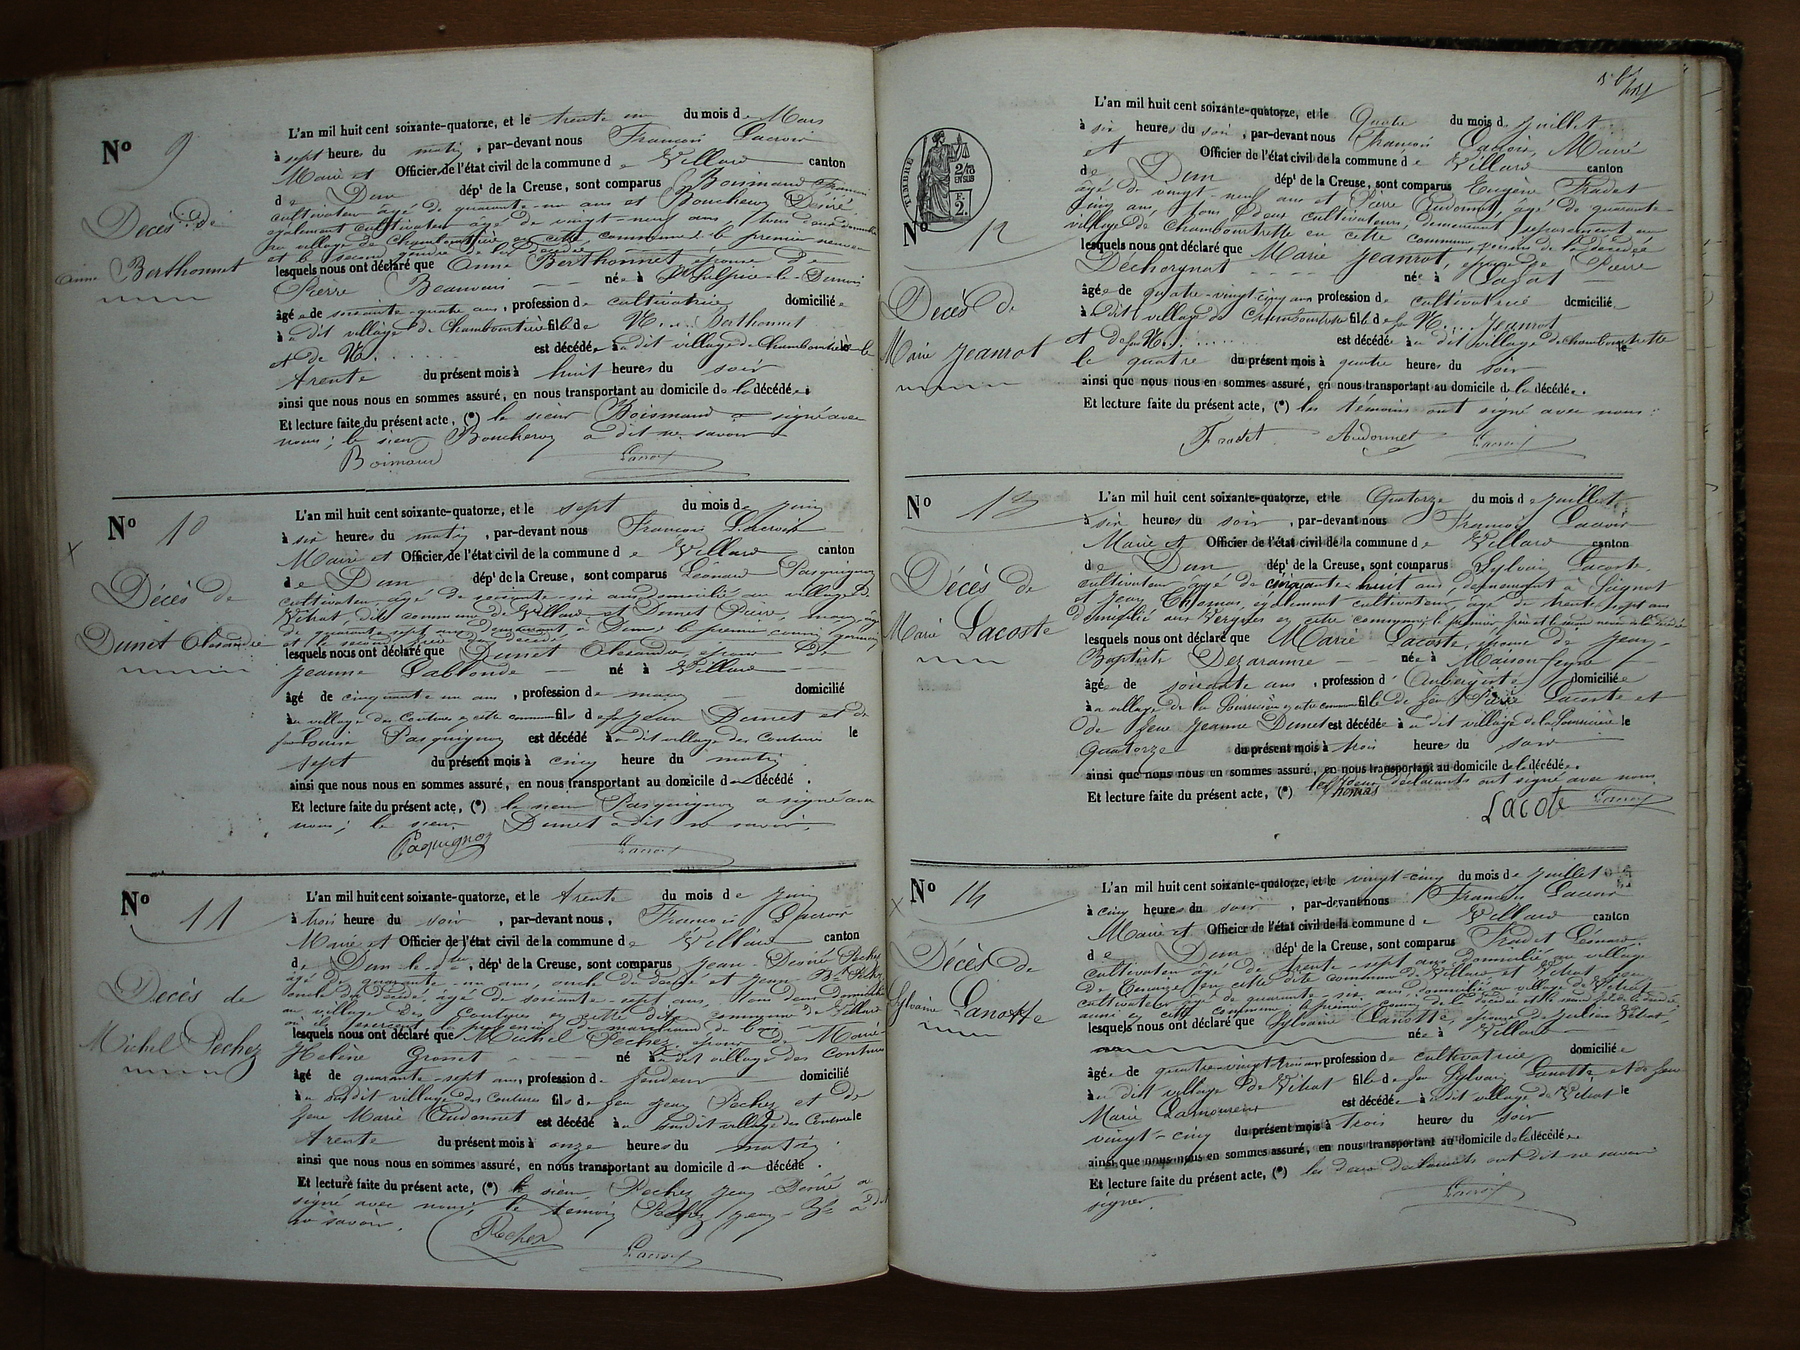 No 9
Décès de
Anne Berthonnet
L'an mil huit cent soixante-quatorze, et le trente un du mois de Mars
à sept heures du matin, par-devant nous François Lacroix
Maire et Officier de l'état civil de la commune de Villard canton
de Dun dépt de la Creuse, sont comparus Boismaud François
cultivateur âgé de quarante-un ans et Boucheron Désiré
également cultivateur âgé de vingt-neuf ans, tous deux
au village de Chamboutrière en cette commune le premier neveu
et le second gendre de la décédée
lesquels nous ont déclaré que Anne Berthonnet épouse de
Pierre Beauvais née à St Sulpice-le-Dunois
âgée de soixante-quatre ans, profession de cultivatrice domiciliée
à dit village de Chamboutrière fille de N... Berthonnet
et de N....... est décédée au dit village de Chamboutrière le
trente du présent mois à huit heures du soir
ainsi que nous nous en sommes assuré, en nous transportant au domicile de la décédée.
Et lecture faite du présent acte, (*) le sieur Boismaud a signé avec
nous; le sieur Boucheron a dit ne savoir
Boimaud Lacroix
No 10
Décès de
Dunet Alexandre
L'an mil huit cent soixante-quatorze, et le sept du mois de juin
à six heures du matin, par-devant nous François Lacroix
Maire et Officier de l'état civil de la commune de Villard canton
de Dun dépt de la Creuse, sont comparus Léonard Pasquignon
cultivateur âgé de soixante-six ans domicilié au village de
Vitrat, dite commune de Villard et Dunet Pierre, maçon, âgé
de quarante sept ans demeurant à Dun le premier cousin germain
et le second frère du décédé
lesquels nous ont déclaré que Dunet Alexandre, époux de
Jeanne Lablonde né à Villard
âgé de cinquante un ans, profession de maçon domicilié
au village des Coutures en cette commune fils de feu Jean Dunet et de
feue Louise Pasquignon est décédé au dit village des Coutures le
sept du présent mois à cinq heure du matin
ainsi que nous nous en sommes assuré, en nous transportant au domicile du décédé.
Et lecture faite du présent acte, (*) le sieur Pasquignon a signé avec
nous; le sieur Dunet a dit ne savoir.
Paquignon Lacroix
No 11
Décès de
Michel Pechez
L'an mil huit cent soixante-quatorze, et le trente du mois de juin
à trois heure du soir, par-devant nous, François Lacroix
Maire et Officier de l'état civil de la commune de Villard canton
de Dun, dépt de la Creuse, sont comparus Jean-Désiré Pechez
âgé de quarante-un ans, oncle du décédé et Jean-Bte Pechez
oncle du décédé, âgé de soixante-sept ans, tous deux domiciliés
au village des Coutures en cette dite commune de Villard
où ils exercent la profession de marchand de
lesquels nous ont déclaré que Michel Pechez époux de Marie
Helène Grosset né au dit village des Coutures
âgé de quarante-sept ans, profession de fendeur domicilié
au susdit village des Coutures fils de feu Jean Pechez et de
feue Marie Audonnet est décédé au susdit village des Coutures le
trente du présent mois à onze heures du matin
ainsi que nous nous en sommes assuré, en nous transportant au domicile du décédé.
Et lecture faite du présent acte, (*) le sieur Pechez Jean-Désiré a
signé avec nous, le témoin Pechez Jean-Bte a dit
ne savoir.
Pechez Lacroix
TIMBRE
2/10
EN SUS
F.
2.
No 12
Décès de
Marie Jeanrot
L'an mil huit cent soixante-quatorze, et le Quatre du mois de juillet
à six heures du soir, par-devant nous François Lacroix, Maire
et Officier de l'état civil de la commune de Villard canton
de Dun dépt de la Creuse, sont comparus Eugène Fradet
âgé de vingt-neuf ans et Pierre Audonnet, âgé de quarante
cinq ans, tous deux cultivateurs, demeurant séparément au
village de Chamboutrette en cette commune, de la décédée
lesquels nous ont déclaré que Marie Jeanrot, épouse de Pierre
Dechorgnat née à Sagnat
âgée de quatre-vingt-cinq ans profession de cultivatrice domiciliée
à dit village de Chamboutrette fille de feu N.... Jeanrot
et de feu N......... est décédée au dit village de Chamboutrette le
le quatre du présent mois à quatre heures du soir
ainsi que nous nous en sommes assuré, en nous transportant au domicile de la décédée.
Et lecture faite du présent acte, (*) les témoins ont signé avec nous.
Fradet Audonnet Lacroix
No 13
Décès de
Marie Lacoste
L'an mil huit cent soixante-quatorze, et le Quatorze du mois de juillet
à six heures du soir, par-devant nous François Lacroix
Maire et Officier de l'état civil de la commune de Villard canton
de Dun dépt de la Creuse, sont comparus Sylvain Lacoste,
cultivateur âgé de cinquante-huit ans, demeurant à Sagnat
et Jean Thomas, également cultivateur, âgé de trente sept ans
domicilié aux Vergnes en cette commune, le premier frère et le second neveu de la décédée
lesquels nous ont déclaré que Marie Lacoste, épouse de Jean-
Baptiste Dezaranne née à Maison-feyne
âgée de soixante ans, profession d'Aubergiste domiciliée
au village de la en cette commune fille de feu Pierre Lacoste et
de feue Jeanne Dunet est décédée au dit village de la le
Quatorze du présent mois à trois heures du soir
ainsi que nous nous en sommes assuré, en nous transportant au domicile de la décédée.
Et lecture faite du présent acte, (*) les deux déclarants ont signé avec nous.
Thomas Lacote Lacroix
No 14
Décès de
Sylvaine Lanotte
L'an mil huit cent soixante-quatorze, et le vingt-cinq du mois de juillet
à cinq heures du soir, par-devant nous François Lacroix
Maire et Officier de l'état civil de la commune de Villard canton
de Dun dépt de la Creuse, sont comparus Pradet Léonard,
cultivateur âgé de trente-sept ans domicilié au village
de en cette dite commune de Villard et Vitrat
cultivateur âgé de quarante-six ans, domicilié au village de Vitrat
aussi en cette commune le premier cousin de la décédée et le second fils de la décédée
lesquels nous ont déclaré que Sylvaine Lanotte, épouse de Julien Vitrat,
née à Villard
âgée de quatre-vingt-trois ans profession de cultivatrice domiciliée
au dit village de Vitrat fille de feu Sylvain Lanotte et de feue
Marie Lamoureux est décédée à dit village de Vitrat le
vingt-cinq du présent mois à trois heures du soir
ainsi que nous nous en sommes assuré, en nous transportant au domicile de la décédée.
Et lecture faite du présent acte, (*) les deux déclarants ont dit ne savoir
signer.
Lacroix